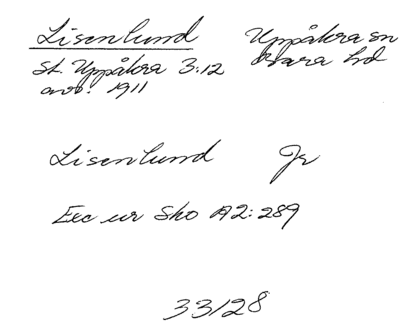 Lisenlund Uppåkra sn
St. Uppåkra 3:12 Bara hd
avs. 1911
Lisenlund Jr
Exc ur Sko A2:289
33/28